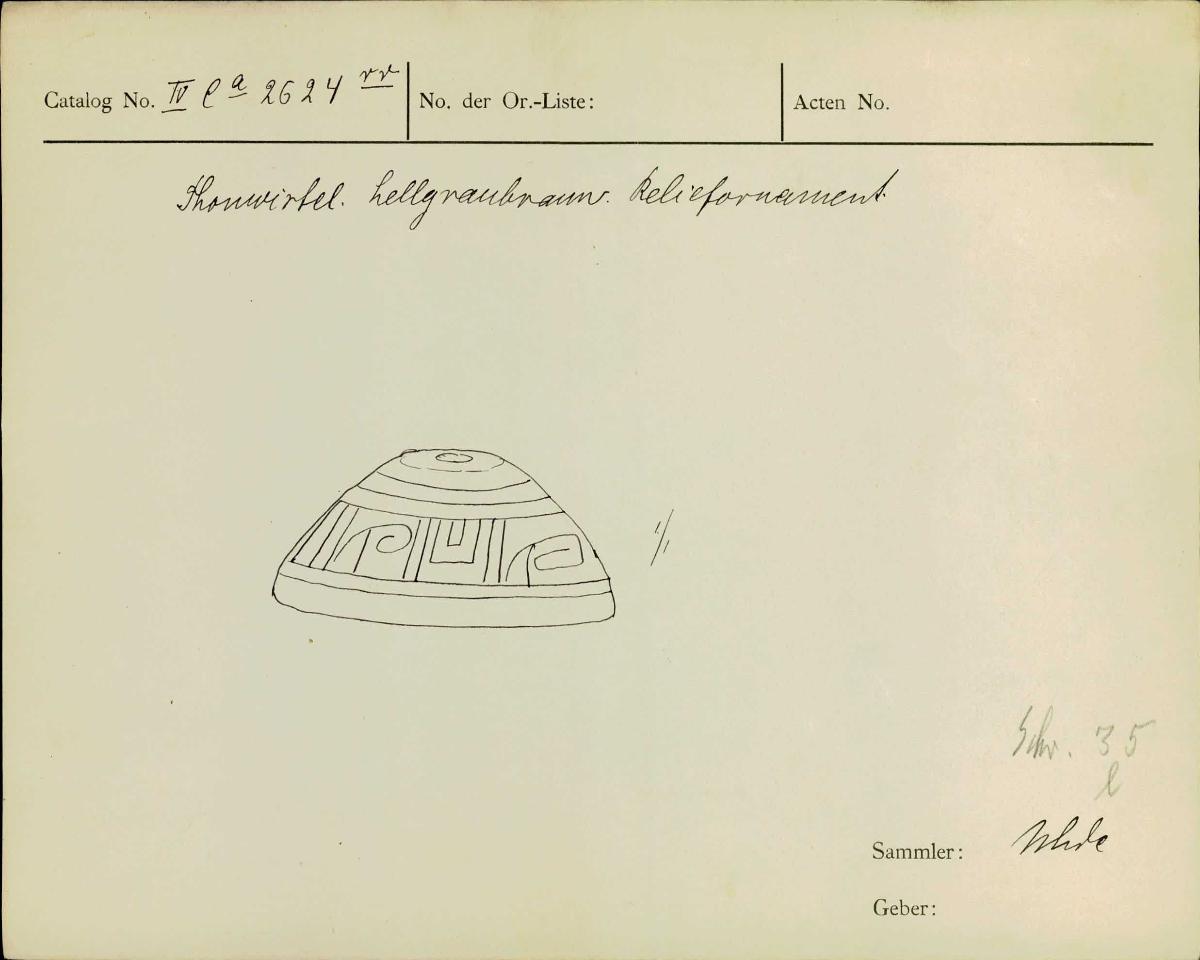 Catalog No. IV Ca 2624 vv No. der Or.-Liste: Acten No.
Thonwirtel. hellgraubraun. Reliefornament
1/1
Schr. 35
l
Sammler: Uhde
Geber: